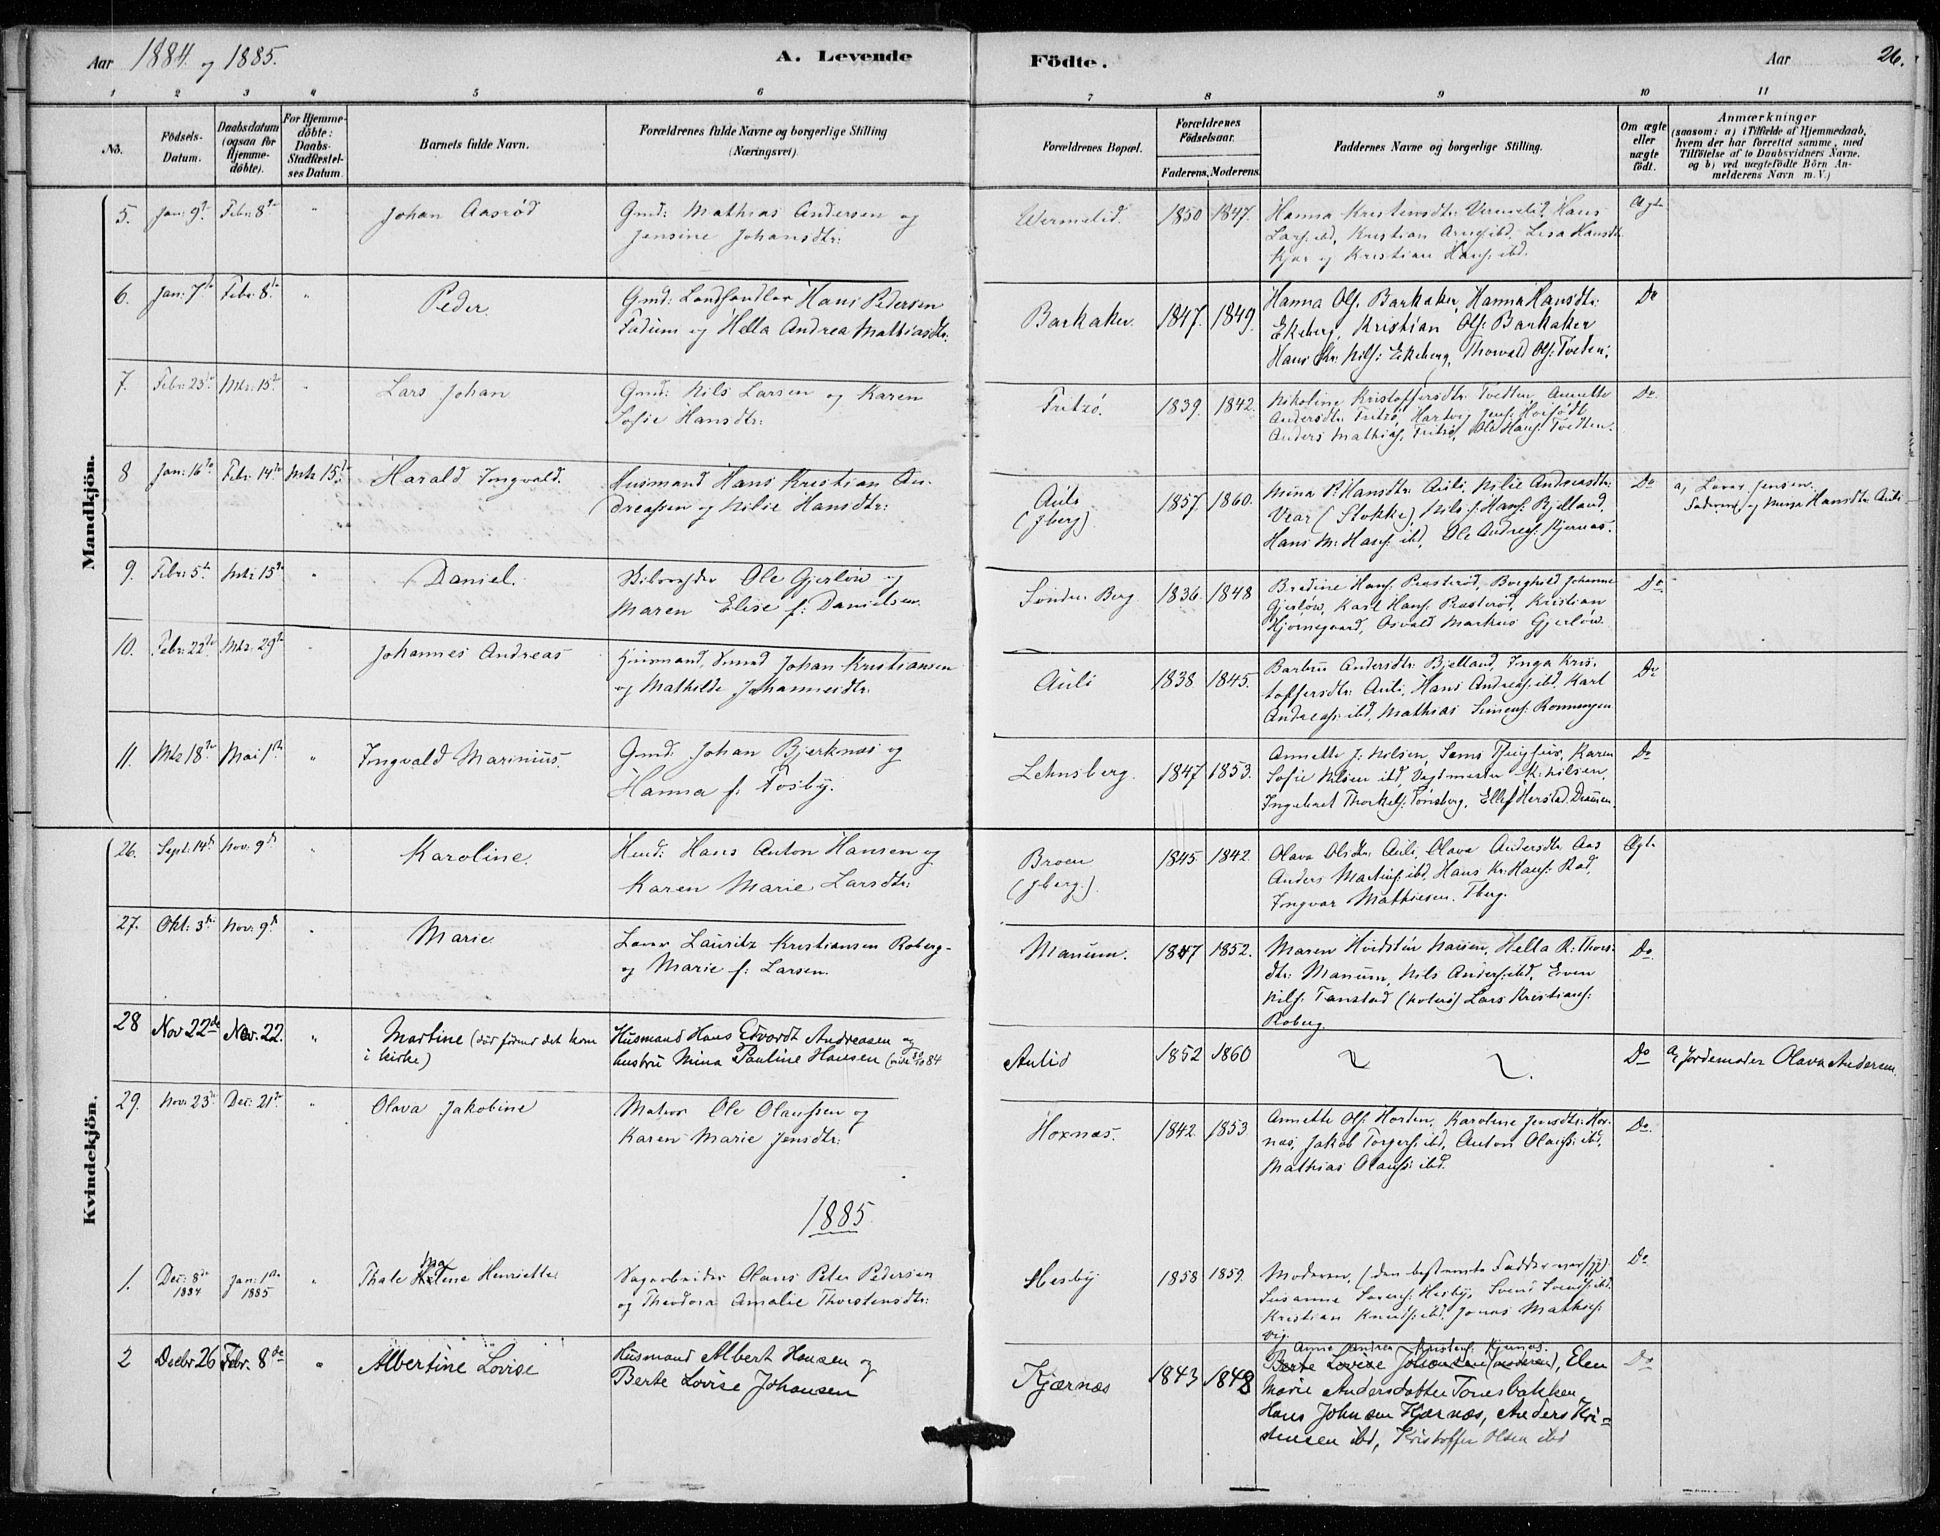 Aar 1884 og 1885. A. Levende Födte. Aar 26.
1 2 3 4 5 6 7 8 9 10 11
No. Födsels-Datum. Daabsdatum (ogsaa for Hjemme-döbte). For Hjemme-döbte: Daabs-Stadfæstel-ses Datum. Barnets fulde Navn. Forældrenes fulde Navne og borgerlige Stilling (Næringsvei). Forældrenes Bopæl. Forældrenes Födselsaar. Faderens. Moderens. Faddernes Navne og borgerlige Stilling. Om ægte eller uægte födt. Anmærkninger (saasom: a) i Tilfælde af Hjemmedaab, hvem der har forrettet samme, med Tilföielse af to Daabsvidners Navne, og b) ved uægtefödte Börn An-melderens Navn m.V.)
Mandkjön.
5. Jan: 9de Febr: 8de " Johan Aasrød Gmd: Mathias Andersen og
Jensine Johansdtr: Vermelid. 1850 1847. Hanna Kristensdtr: Vermelid, Hans
Lars: ibd, Kristian Arnes: ibd, Lisa Hansdtr:
Kjær og Kristian Hans: ibd. Ægte
6. Jan: 7de Febr: 8de " Peder. Gmd: Landhandler Hans Pedersen
Fadum og Hella Andrea Mathiasdtr: Barkaker. 1847. 1849. Hanna Ols: Barkaker, Hanna Hansdtr:
Ekeberg, Kristian Ols: Barkaker
Hans Kr: Nils: Ekeberg, Thorvald Ols: Tveden. Do
7. Febr: 23de Mts: 15de " Lars Johan Gmd: Nils Larsen og Karen
Sofie Hansdtr: Fritzö. 1839. 1842. Nikoline Kristoffersdtr: Tvedten, Annette
Andersdtr: Fritzö, Hartvig Jens:
Anders Mathias: Fritzö, Ole Hans: Tvedten. Do
8 Jan: 16de Febr: 14de Mts 15de Harald Ingvald. Husmand Hans Kristian An-
dreassen og Nilie Hansdtr: Auli
(Jberg). 1857. 1860. Mina P: Hansdtr: Auli, Nilie Andreasdtr:
Vear (Stokke), Nils J. Hans: Bjelland,
Hans M: Hans: ibd, Ole Andreas: Kjernæs. Do a, Jensen
og Mina Hansdtr: Auli
9. Febr: 5te Mts 15de " Daniel. Ole Gjerløw og
Maren Elise f: Danielsen. Søndre Berg. 1836. 1848 Bredine Hans: Præsterød, Borghild Johanne
Gjerløw, Karl Hans: Præsterød, Kristian
Hjørnegaard, Osvald Markus Gjerløw. Do
10. Febr: 22de Mts: 29de " Johannes Andreas Husmand, Smed Johan Kristiansen
og Mathilde Johannesdtr: Auli 1838 1845. Andersdtr: Bjelland, Inga Kris-
toffersdtr: Auli, Hans Andreas: ibd, Karl
Andreas: ibd, Mathias Simens: Rønningen Do
11. Mts 18de Mai 1ste " Ingvald Marinius. Gmd: Johan Bjerknæs og
Hanna f: Fosby. Lehnsberg. 1847 1853. Annette J: Nilsen, Sems Karen
Sofie Nilsen ibd, Vagtmester K: Nilsen,
Ingebret Thorkels: Tønsberg, Ellef Herstad, Drammen. Do
Kvindekjön.
26. Sept: 14de Nov: 9de " Karoline. Hmd: Hans Anton Hansen og
Karen Marie Larsdtr: Broen
(Jberg.). 1845 1842. Olava Olsdtr: Auli, Olava Andersdtr: Aas
Anders Martins: ibd, Hans Kr: Hans: Rød,
Ingvar Mathiesen. Tberg. Ægte
27. Okt: 3de Nov: 9de " Marie Lauritz Kristiansen Roberg-
og Marie f: Larsen. Manum. 1847 1852. Maren Hvidstén Hansen, Hella R: Thors-
dtr: Manum, Nils Anders: ibd, Even
Nils: Tanstad Lars Kristians:
Roberg. Do
28 Nov 22de Nov. 22. " Martine (død førend det kom
i kirke) Husmand Hans Edvardt Andreasen og
hustru Mina Pauline Hansen Aulid 1852 1860 Do a, Jordemoder Olava Andersen.
29. Nov: 23de Dec: 21de " Olava Jakobine Matros Ole Olaussen og
Karen Marie Jensdtr: Hoxnæs. 1842. 1853 Annette Ols: Horten, Karoline Jensdtr: Hox-
næs, Jakob Torgers: ibd, Anton Olaus: ibd,
Mathias Olaus: ibd. Do.
1885
1. Dec: 8de
1884 Jan: 1ste
1885 " Thale Helene Henriette Olaus Peter Pedersen
og Theodora Amalie Thorstensdtr: Hesby 1858 1859. Moderen, (den bestemte Fadder var syg).
Susanne Sørens: Hesby, Svend Svends: ibd.
Kristian Knuds: ibd. Jonas Mathis:
Vig. Do
2 Decbr 26 Febr. 8de " Albertine Lovise Husmand Albert Hansen og
Berte Lovise Johansen Kjærnæs 1843 1848 Anne Andrea Kristens: Kjærnæs.
Berte Lovise Johansen (moderen), Elen
Marie Andersdatter Tonesbakken
Hans Johnsen Kjærnæs, Anders Kri-
stensen ibd, Kristoffer Olsen ibd Do